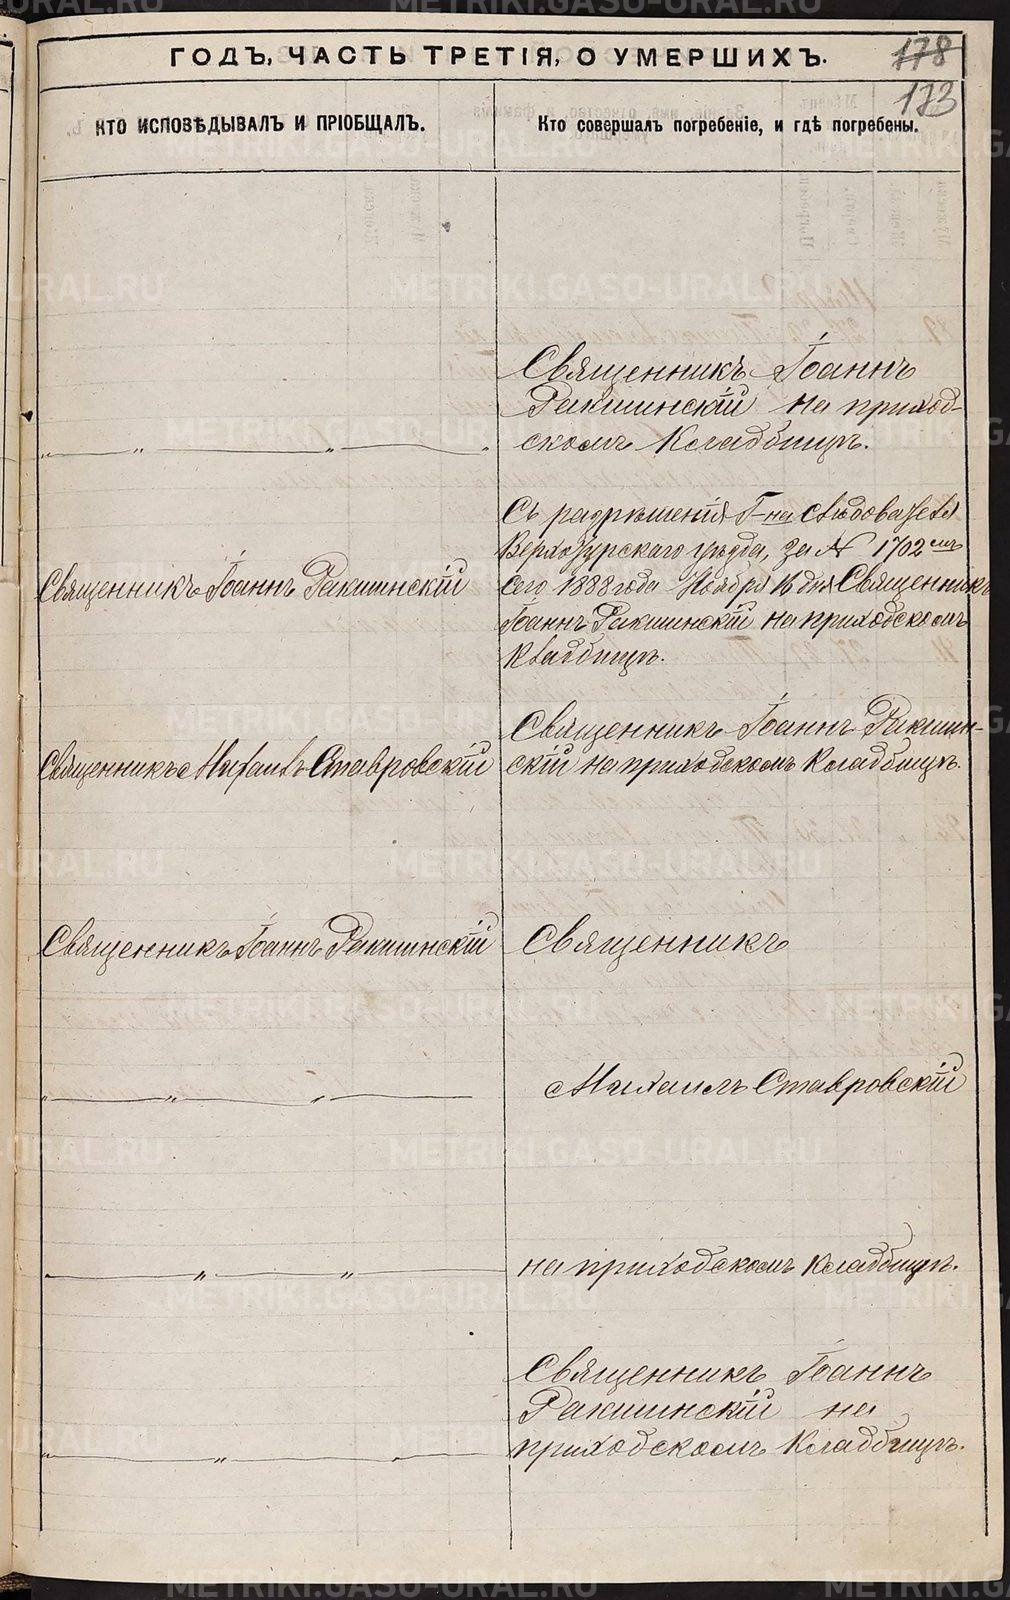 ГОДЪ, ЧАСТЬ ТРЕТІЯ, О УМЕРШИХЪ.
178
173
КТО ИСПОВѢДЫВАЛЪ И ПРІОБЩАЛЪ.
Кто совершалъ погребеніе, и гдѣ погребены.
Священникъ Іоаннъ
Ракшинскій на приход-
скомъ Кладбищѣ.
Священникъ Іоаннъ Ракшинскій
Съ разрѣшенія Г-на слѣдователя
Верхотурскаго уѣзда, за № 1702 мъ
сего 1888 года Ноября 16 дня Священникъ
Іоаннъ Ракшинскій на приходскомъ
Кладбищѣ.
Священникъ Михаилъ Ставровскій
Священникъ Іоаннъ Ракшин-
скій на приходскомъ Кладбищѣ.
Священникъ Іоаннъ Ракшинскій
Священникъ
Михаилъ Ставровскій
на приходскомъ Кладбищѣ.
Священникъ Іоаннъ
Ракшинскій на
приходскомъ Кладбищѣ.
METRIKI.GASO-URAL.RU